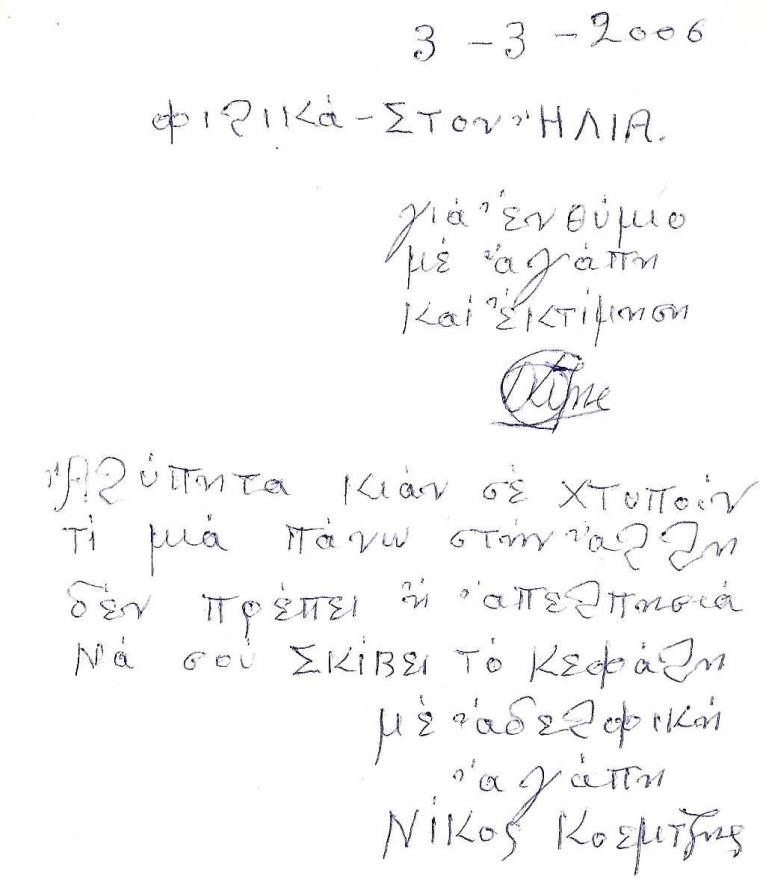 3 - 3 - 2006
φιλικά - Στον Ἠλία.
γιά ἐνθύμιο
μέ ἀγάπη
καί ἐκτίμηση
Ἀλύπητα κιάν σέ χτυποῦν
τί μιά πάνω στήν ἄλλη
δέν πρέπει ἡ ἀπελπησιά
Νά σοῦ ΣΚίΒει τό κεφάλη
μέ ἀδελφική
ἀγάπη
Νίκος Κοεμτζής